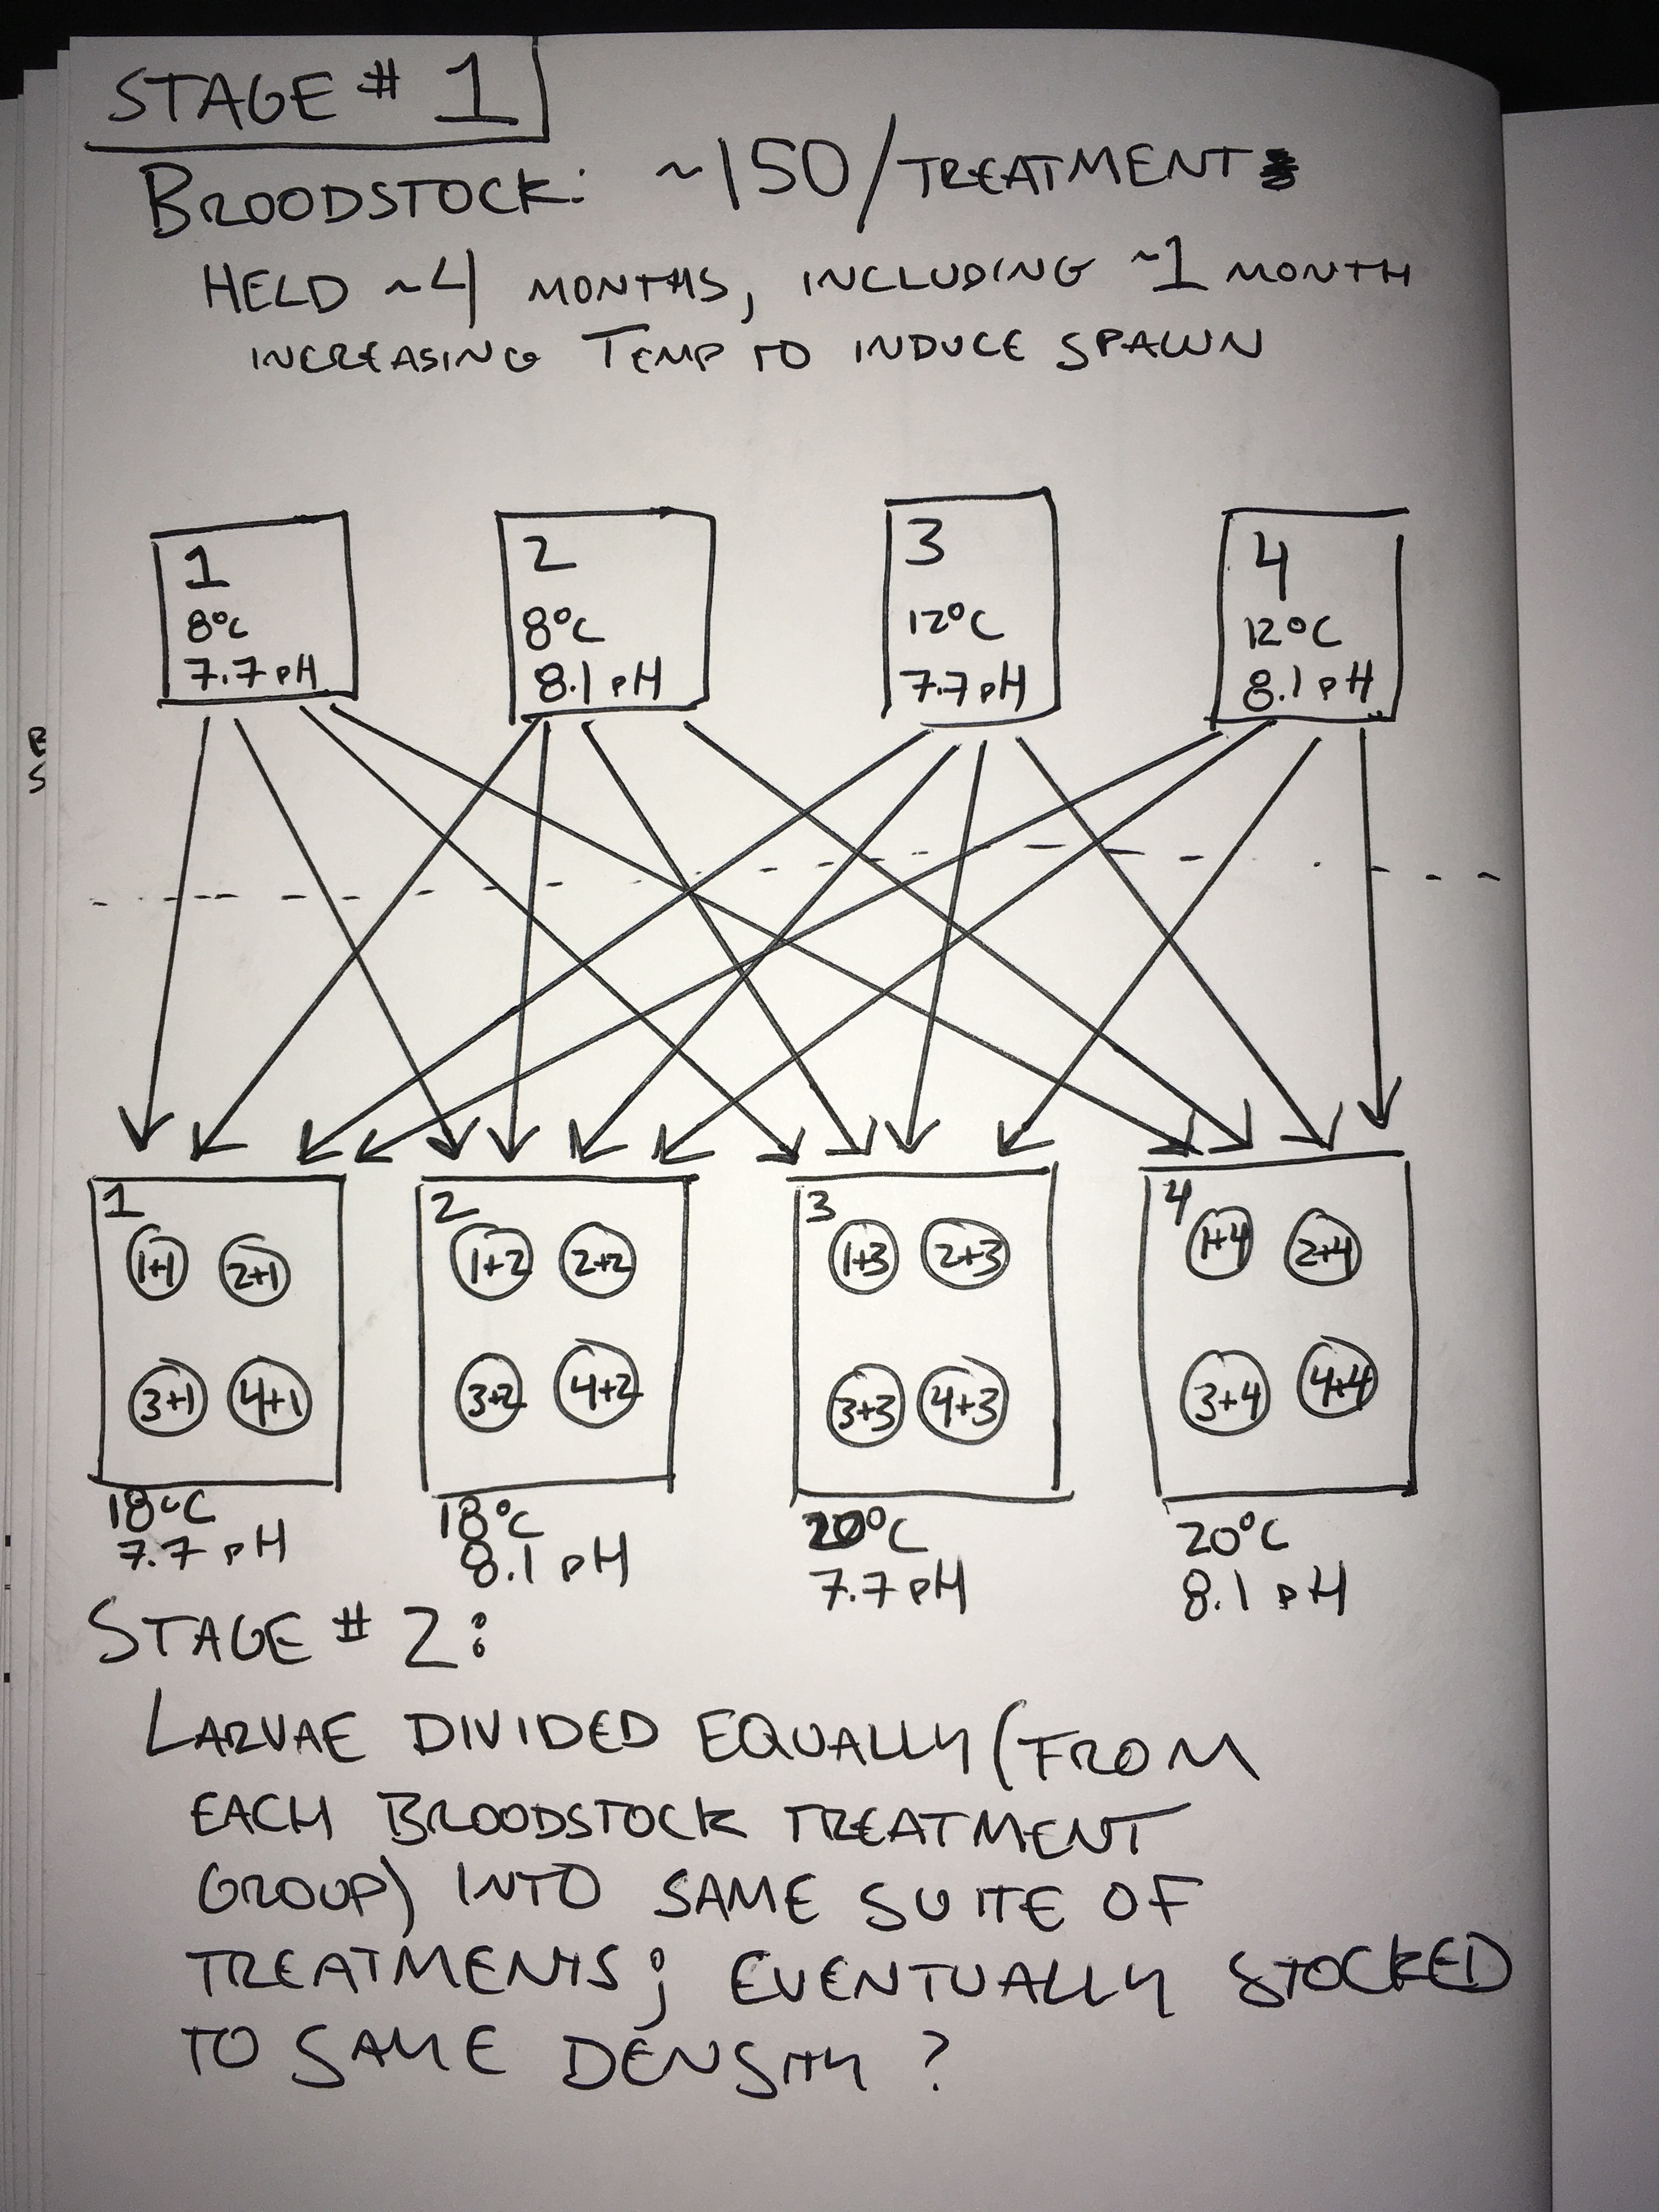 STAGE # 1
BROODSTOCK: ~150/TREATMENT
HELD ~4 MONTHS, INCLUDING ~1 MONTH
INCREASING TEMP TO INDUCE SPAWN
1
8°C
7.7 pH
2
8°C
8.1 pH
3
12°C
7.7 pH
4
12°C
8.1 pH
1
1+1 2+1
3+1 4+1
18°C
7.7 pH
2
1+2 2+2
3+2 4+2
18°C
8.1 pH
3
1+3 2+3
3+3 4+3
20°C
7.7 pH
4
1+4 2+4
3+4 4+4
20°C
8.1 pH
STAGE # 2:
LARVAE DIVIDED EQUALLY (FROM
EACH BROODSTOCK TREATMENT
GROUP) INTO SAME SUITE OF
TREATMENTS; EVENTUALLY STOCKED
TO SAME DENSITY?